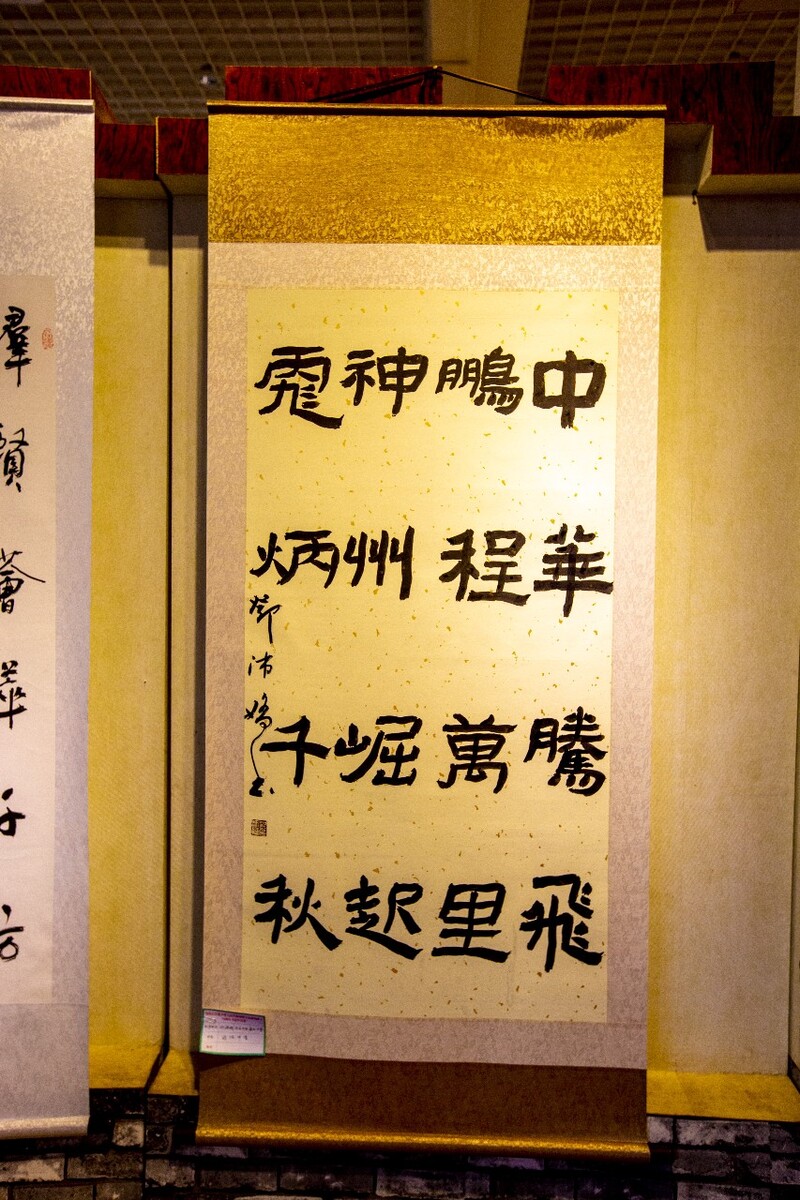 中華騰飛
鵬程萬里
神州崛起
彪炳千秋
鄧沛嬌书
羣賢薈萃